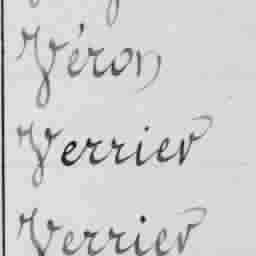 Véron
Verrier
Verrier